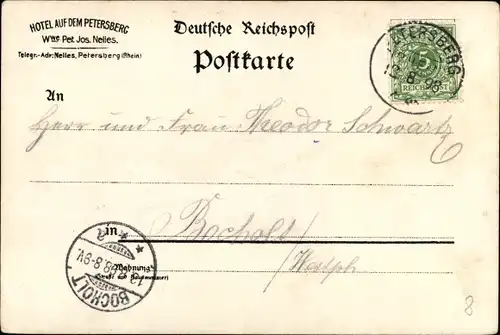 HOTEL AUF DEM PETERSBERG
Wwe Pet. Jos. Nelles.
Telegr.-Adr: Nelles, Petersberg (Rhein)
Deutsche Reichspost
Postkarte
PETERSBERG
8 98
5
REICHSPOST
An
Herr und Frau Theodor Schwartz
in Bocholt
Wohnung
Westph
BOCHOLT
8